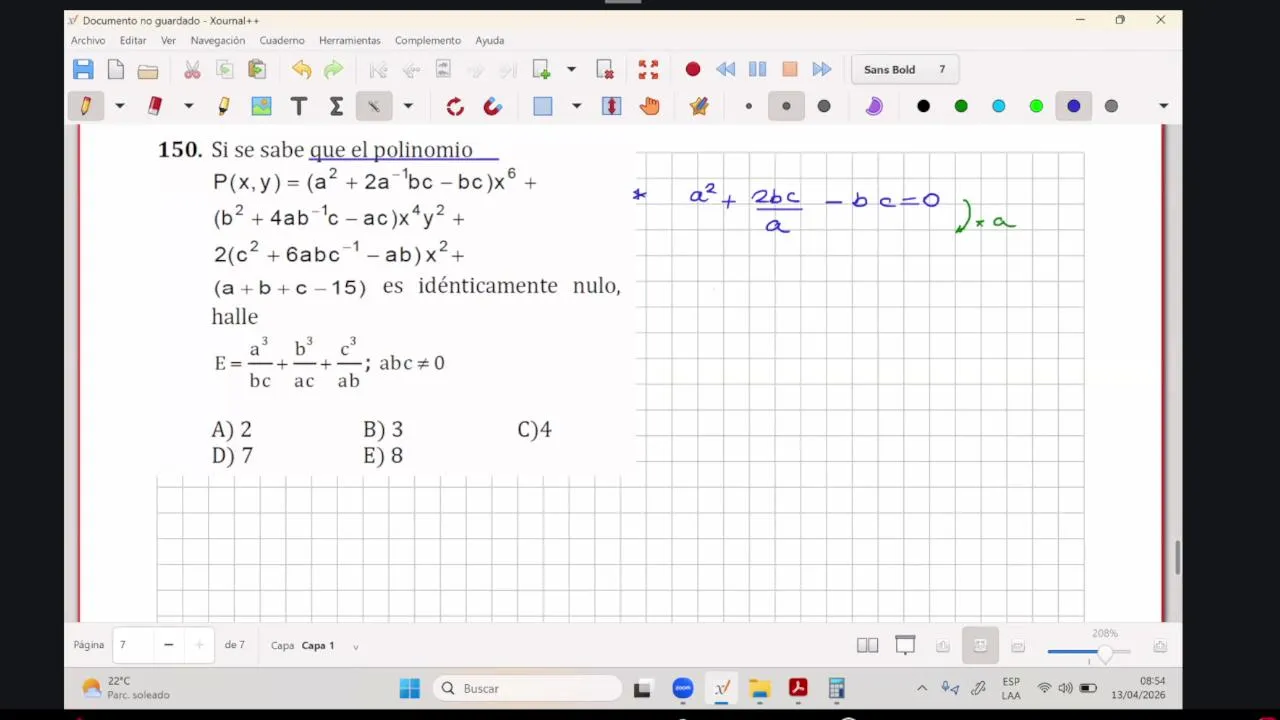 Documento no guardado - Xournal++
Archivo Editar Ver Navegación Cuaderno Herramientas Complemento Ayuda
Sans Bold 7
150. Si se sabe que el polinomio
P(x,y) = (a² + 2a⁻¹bc − bc)x⁶ +
(b² + 4ab⁻¹c − ac)x⁴y² +
2(c² + 6abc⁻¹ − ab)x² +
(a + b + c − 15) es idénticamente nulo,
halle
E = a³/bc + b³/ac + c³/ab; abc ≠ 0
A) 2 B) 3 C)4
D) 7 E) 8
* a² + 2bc/a − bc = 0
* a
Página 7 de 7 Capa Capa 1 208%
22°C
Parc. soleado
Buscar
ESP
LAA
08:54
13/04/2026